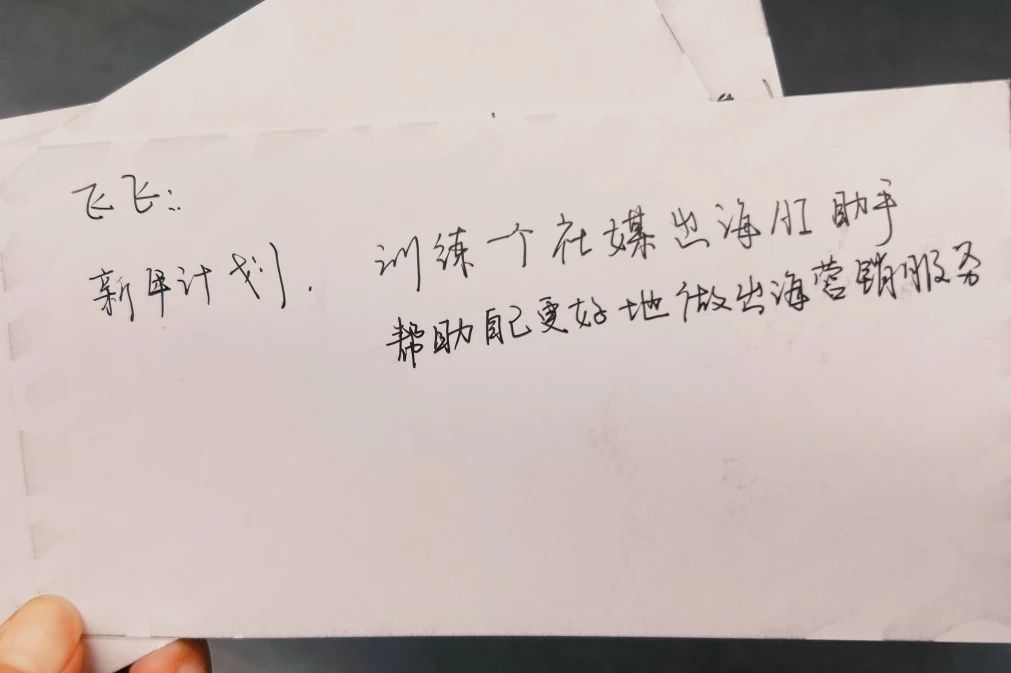 飞飞:
新年计划. 训练一个社媒出海AI助手
帮助自己更好地做出海营销服务